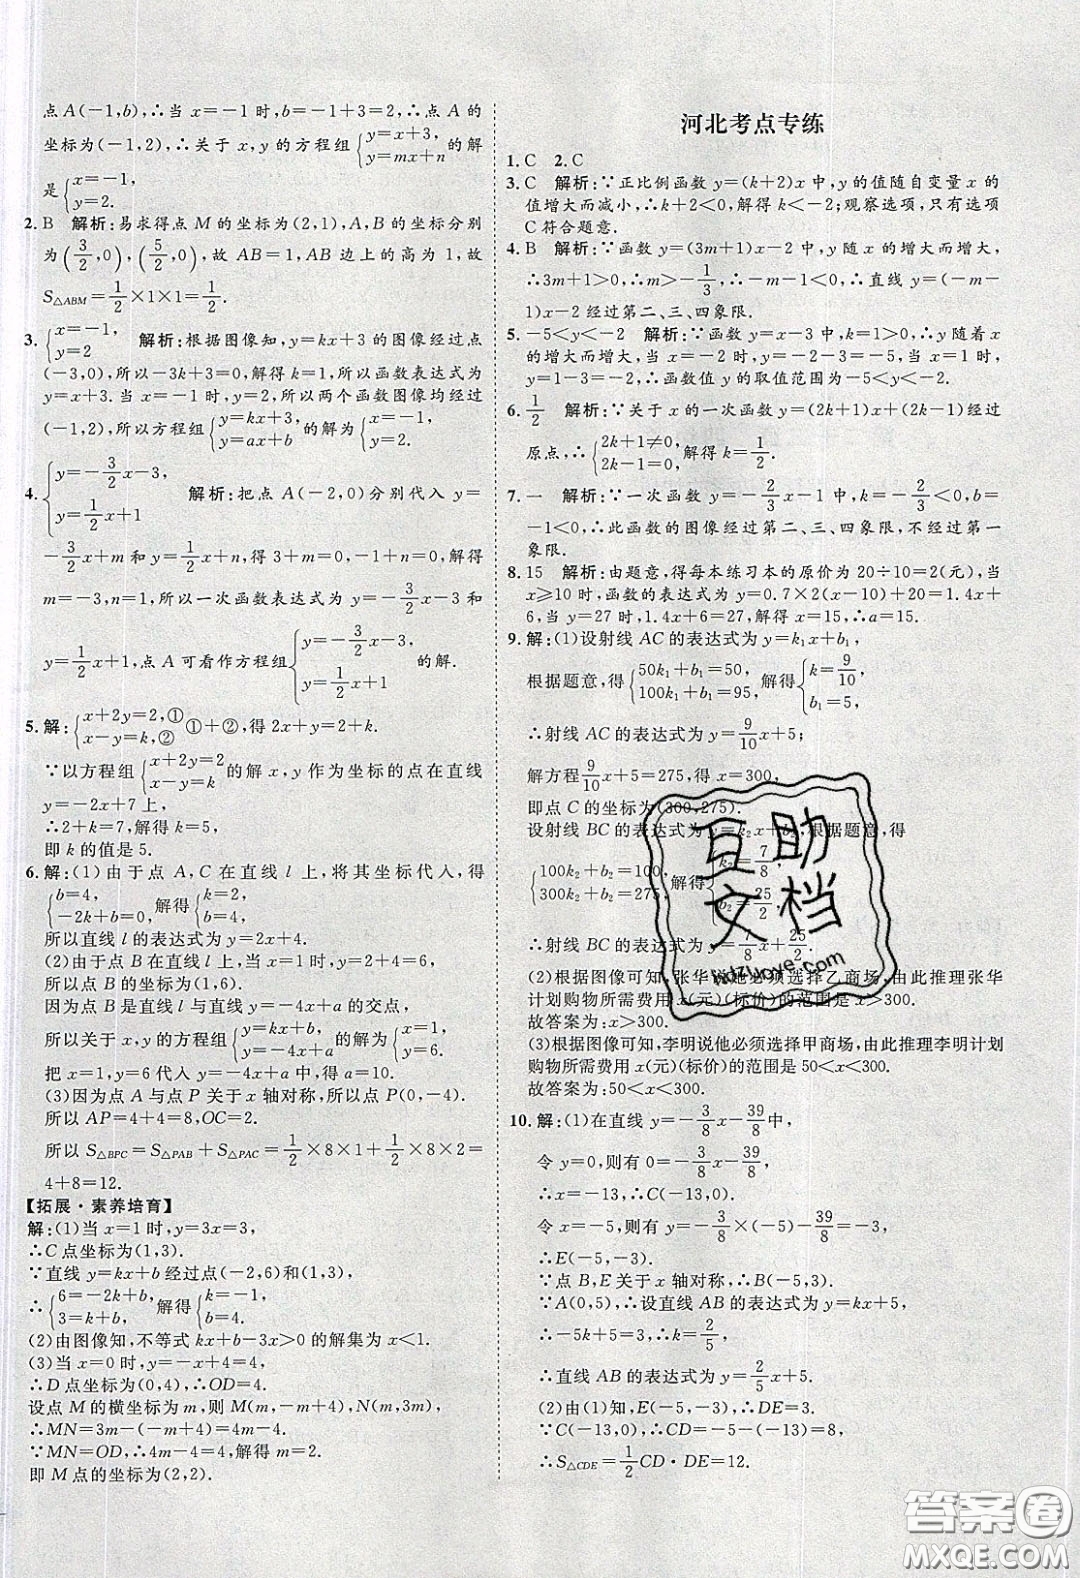 点 A(−1,b),∴当 x=−1 时,b=−1+3=2,∴点 A 的
坐标为(−1,2),∴关于 x,y 的方程组{y=x+3, y=mx+n 的解
是{x=−1, y=2.
2. B 解析:易求得点 M 的坐标为(2,1),A,B 的坐标分别
为(3/2,0),(5/2,0),故 AB=1,AB 边上的高为 1,故
S△ABM=1/2×1×1=1/2.
3. {x=−1, y=2 解析:根据图像知,y=kx+3 的图像经过点
(−3,0),所以−3k+3=0,解得 k=1,所以函数表达式为
y=x+3.当 x=−1 时,y=2,所以两个函数图像均经过
(−1,2),所以方程组{y=kx+3, y=ax+b 的解为{x=−1, y=2.
4. {y=−3/2x−3, y=1/2x+1 解析:把点 A(−2,0)分别代入 y=
−3/2x+m 和 y=1/2x+n,得 3+m=0,−1+n=0,解得
m=−3,n=1,所以一次函数表达式为 y=−3/2x−3 和
y=1/2x+1,点 A 可看作方程组{y=−3/2x−3, y=1/2x+1 的解.
5. 解:{x+2y=2,① x−y=k,② ①+②,得 2x+y=2+k.
∵以方程组{x+2y=2 x−y=k 的解 x,y 作为坐标的点在直线
y=−2x+7 上,
∴2+k=7,解得 k=5,
即 k 的值是 5.
6. 解:(1)由于点 A,C 在直线 l 上,将其坐标代入,得
{b=4, −2k+b=0, 解得{b=4, k=2.
所以直线 l 的表达式为 y=2x+4.
(2)由于点 B 在直线 l 上,当 x=1 时,y=2+4=6,
所以点 B 的坐标为(1,6).
因为点 B 是直线 l 与直线 y=−4x+a 的交点,
所以关于 x,y 的方程组{y=kx+b, y=−4x+a 的解为{x=1, y=6.
把 x=1,y=6 代入 y=−4x+a 中,得 a=10.
(3)因为点 A 与点 P 关于 x 轴对称,所以点 P(0,−4),
所以 AP=4+4=8,OC=2.
所以 S△BPC=S△PAB+S△PAC=1/2×8×1+1/2×8×2=
4+8=12.
【拓展·素养培育】
解:(1)当 x=1 时,y=3x=3,
∴C 点坐标为(1,3).
∵直线 y=kx+b 经过点(−2,6)和(1,3),
∴{6=−2k+b, 3=k+b, 解得{k=−1, b=4.
(2)由图像知,不等式 kx+b−3x>0 的解集为 x<1.
(3)当 x=0 时,y=−x+4=4,
∴D 点坐标为(0,4),∴OD=4.
设点 M 的横坐标为 m,则 M(m,−m+4),N(m,3m),
∴MN=3m−(−m+4)=4m−4.
∵MN=OD,∴4m−4=4,解得 m=2.
即 M 点的坐标为(2,2).
河北考点专练
1. C 2. C
3. C 解析:∵正比例函数 y=(k+2)x 中,y 的值随自变量 x 的
值增大而减小,∴k+2<0,解得 k<−2;观察选项,只有选项
C 符合题意.
4. B 解析:∵函数 y=(3m+1)x−2 中,y 随 x 的增大而增大,
∴3m+1>0,∴m>−1/3,∴−m−1<0,∴直线 y=(−m−
1)x−2 经过第二、三、四象限.
5. −5<y<−2 解析:∵函数 y=x−3 中,k=1>0,∴y 随着 x
的增大而增大,当 x=−2 时,y=−2−3=−5,当 x=1 时,
y=1−3=−2,∴函数值 y 的取值范围为−5<y<−2.
6. 1/2 解析:∵关于 x 的一次函数 y=(2k+1)x+(2k−1)经过
原点,∴{2k+1≠0, 2k−1=0, 解得 k=1/2.
7. 一 解析:∵一次函数 y=−2/3x−1 中,k=−2/3<0,b=
−1<0,∴此函数的图像经过第二、三、四象限,不经过第一
象限.
8. 15 解析:由题意,得每本练习本的原价为 20÷10=2(元),当
x≥10 时,函数的表达式为 y=0.7×2(x−10)+20=1.4x+
6,当 y=27 时,1.4x+6=27,解得 x=15,∴a=15.
9. 解:(1)设射线 AC 的表达式为 y=k₁x+b₁,
根据题意,得{50k₁+b₁=50, 100k₁+b₁=95, 解得{k=9/10, b₁=5.
∴射线 AC 的表达式为 y=9/10x+5;
解方程 9/10x+5=275,得 x=300,
即点 C 的坐标为(300,275).
设射线 BC 的表达式为 y=k₂x+b₂,根据题意,得
{100k₂+b₂=100, 300k₂+b₂=275, 解得{k₂=7/8, b₂=25/2,
∴射线 BC 的表达式为 y=7/8x+25/2.
(2)根据图像可知,张华说他必须选择乙商场,由此推理张华
计划购物所需费用 x(元)(标价)的范围是 x>300.
故答案为:x>300.
(3)根据图像可知,李明说他必须选择甲商场,由此推理李明计划
购物所需费用 x(元)(标价)的范是 50<x<300.
故答案为:50<x<300.
10. 解:(1)在直线 y=−3/8x−39/8中,
令 y=0,则有 0=−3/8x−39/8,
∴x=−13,∴C(−13,0).
令 x=−5,则有 y=−3/8×(−5)−39/8=−3,
∴E(−5,−3).
∵点 B,E 关于 x 轴对称,∴B(−5,3).
∵A(0,5),∴设直线 AB 的表达式为 y=kx+5,
∴−5k+5=3,∴k=2/5,
∴直线 AB 的表达式为 y=2/5x+5.
(2)由(1)知,E(−5,−3),∴DE=3.
∵C(−13,0),∴CD=−5−(−13)=8,
∴S△CDE=1/2CD·DE=12.
互助
文档
hdzuoye.com
答案圈
MXQE.COM